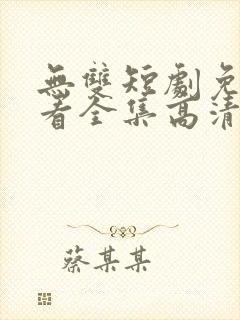 無雙短劇免
看全集高清
蔡某某